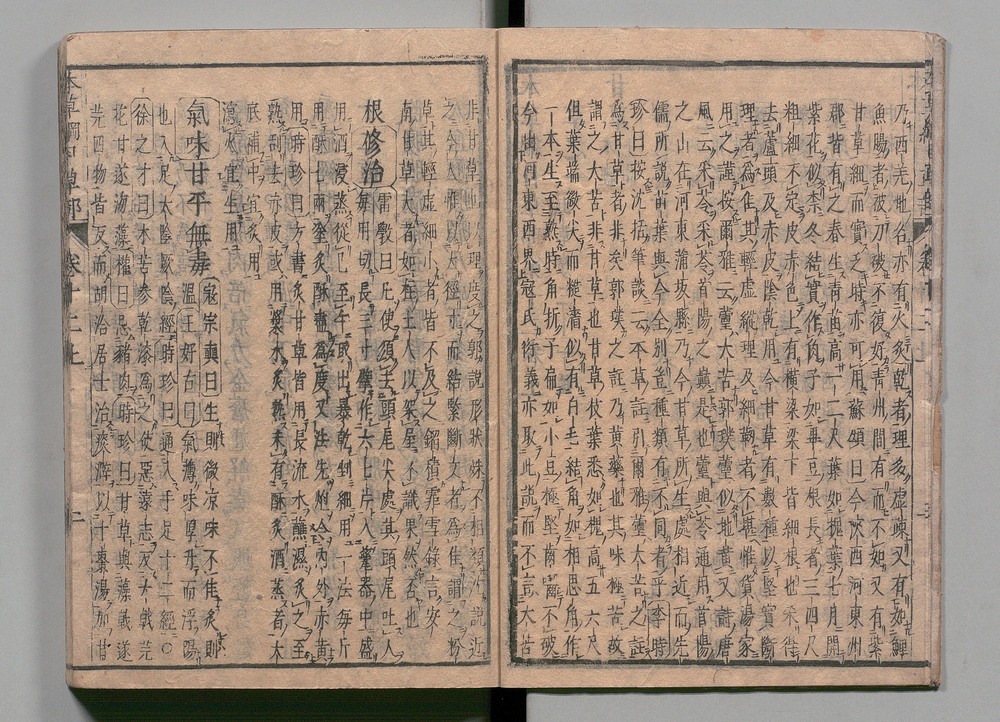 乃西羌地名亦有火炙乾者理多虛疎又有如鯉
魚腸者被刀破不復好青州間有而不如又有紫
甘草細而實乏時亦可用蘇頌曰今陝西河東州
郡皆有之春生青苗高一二尺葉如槐葉七月開
紫花似柰冬結實作角子如畢豆根長者三四尺
粗細不定皮赤色上有橫梁梁下皆細根也采得
去蘆頭及赤皮陰乾用今甘草有數種以堅實斷
理者為佳其輕虛縱理及細靭者不堪惟貨湯家
用之謹按爾雅云蘦大苦郭璞蘦似地黃又詩唐
風云采苓采苓首陽之巔是也蘦與苓通用首陽
之山在河東蒲坂縣乃今甘草所生處相近而先
儒所說苗葉與今全別豈種類有不同者乎李時
珍曰按沈括筆談云本草註引爾雅蘦大苦之註
為甘草者非矣郭璞之註乃黃藥也其味極苦故
謂之大苦非甘草也甘草枝葉悉如槐高五六尺
但葉端微尖而糙澀似有白毛結角如相思角作
一本生至熟時角拆子扁如小豆極堅齒嚙不破
今出河東西界寇氏衍義亦取此說而不言大苦
非甘草也以理度之郭說形狀殊不相類沈說近
之今人惟以大徑寸而結緊斷文者為佳謂之粉
草其輕虛細小者皆不及之劉績霏雪錄言安
南甘草大者如柱土人以架屋不識果然否也
根修治雷斅曰凡使須去頭尾尖處其頭尾吐人
每用切長三寸擘作六七片入瓷器中盛
用酒浸蒸從巳至午取出暴乾剉細用一法每斤
用酥七兩塗炙酥盡為度又法先炮令內外赤黃
用時珍曰方書炙甘草皆用長流水蘸濕炙之至
熟刮去赤皮或用漿水炙熟未有酥炙酒蒸者大
底補中宜炙用
瀉火宜生用
氣味甘平無毒寇宗奭曰生則微涼味不佳炙則
溫王好古曰氣薄味厚升而浮陽
也入足太陰厥陰經時珍曰通入手足十二經〇
徐之才曰木苦參乾漆為之使惡遠志反大戟芫
花甘遂海藻權曰忌豬肉時珍曰甘草與藻戟遂
芫四物皆反而胡洽居士治痰澼以十棗湯加甘